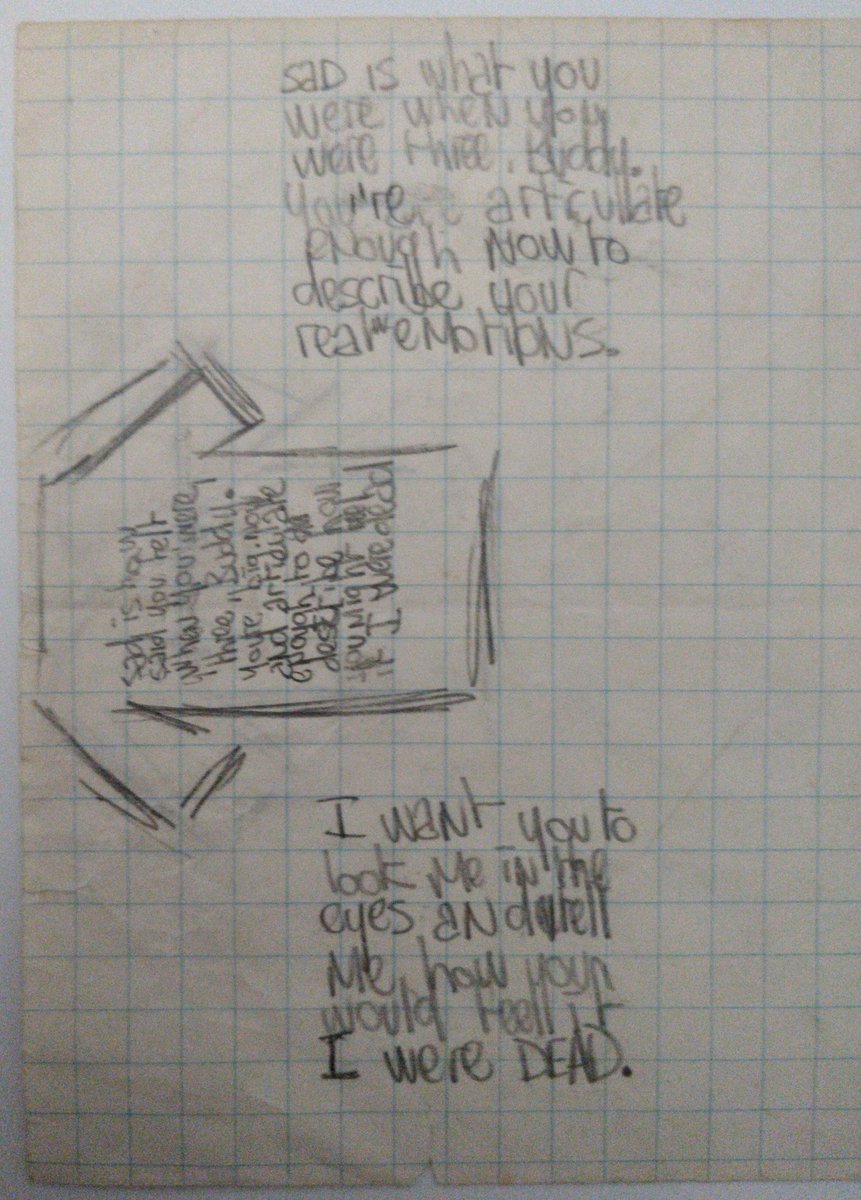 sad is what you
were when you
were three, Buddy.
You're articulate
enough now to
describe your
real emotions.
sad is how
said you felt
when you were
three, Buddy.
You're big now
and articulate
enough to
describe how
you might feel
if I were dead
I want you to
look me in the
eyes and tell
me how you
would feel if
I were DEAD.